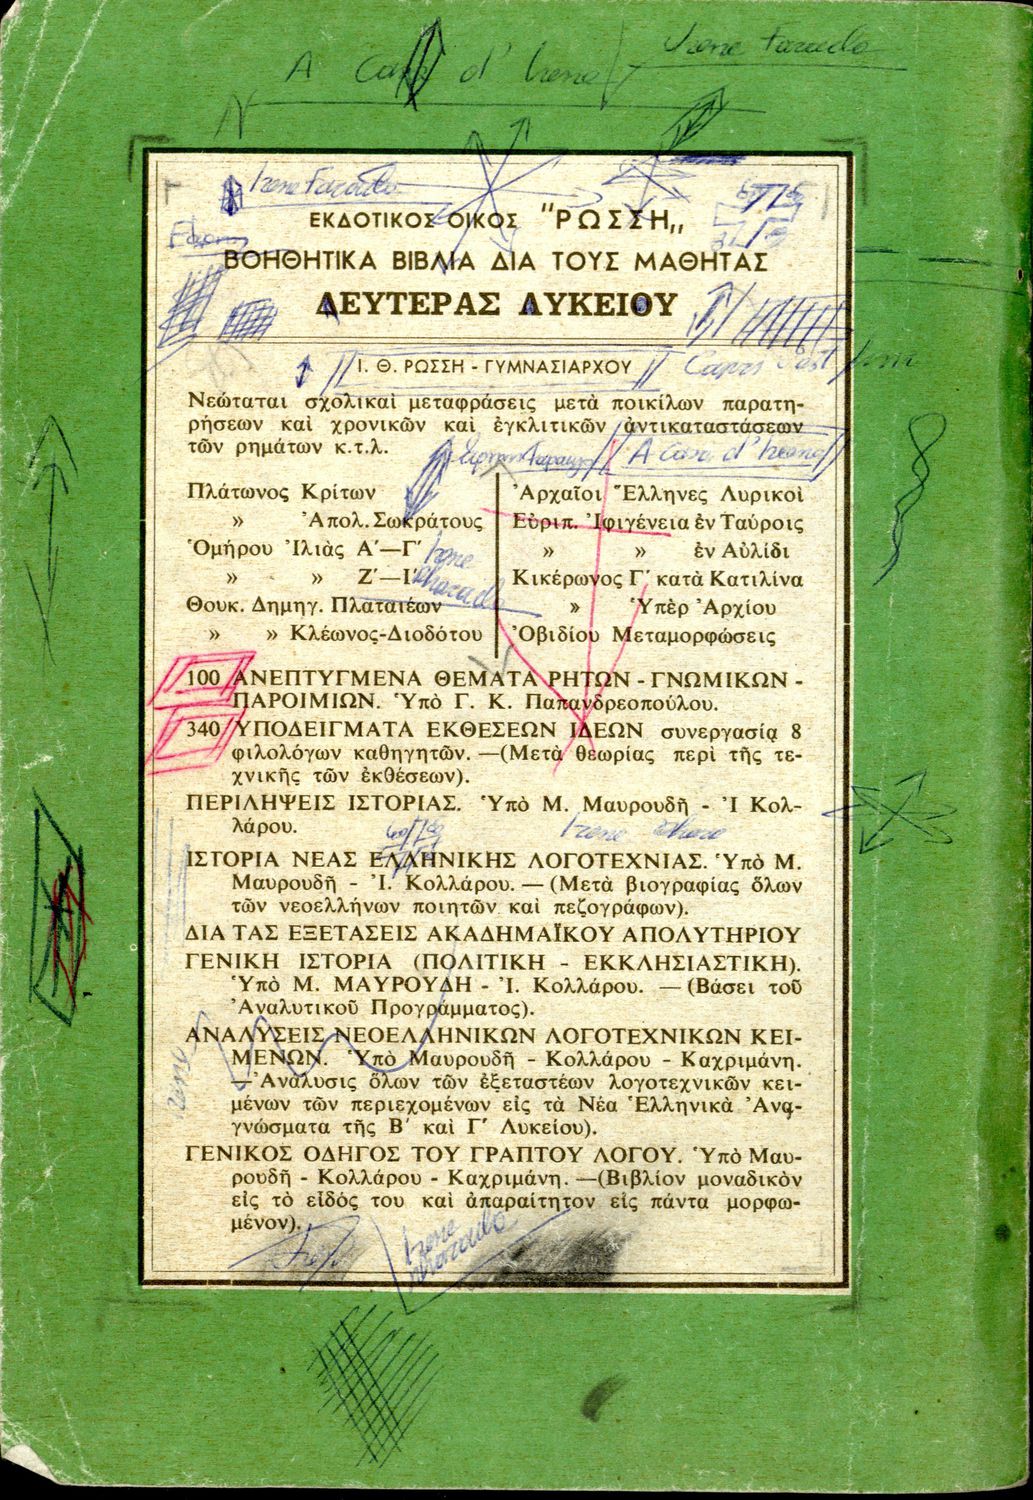 A Casa d' Irene
Irene
Irene
ΕΚΔΟΤΙΚΟΣ ΟΙΚΟΣ "ΡΩΣΣΗ,,
ΒΟΗΘΗΤΙΚΑ ΒΙΒΛΙΑ ΔΙΑ ΤΟΥΣ ΜΑΘΗΤΑΣ
ΔΕΥΤΕΡΑΣ ΛΥΚΕΙΟΥ
Ι. Θ. ΡΩΣΣΗ - ΓΥΜΝΑΣΙΑΡΧΟΥ
Capri
Νεώταται σχολικαὶ μεταφράσεις μετὰ ποικίλων παρατη-
ρήσεων καὶ χρονικῶν καὶ ἐγκλιτικῶν ἀντικαταστάσεων
τῶν ρημάτων κ.τ.λ.
A casa d' Irene
Πλάτωνος Κρίτων
» Ἀπολ. Σωκράτους
Ὁμήρου Ἰλιὰς Α΄—Γ΄
» » Ζ΄—Ι΄
Θουκ. Δημηγ. Πλαταιέων
» » Κλέωνος-Διοδότου
Irene
Ἀρχαῖοι Ἕλληνες Λυρικοὶ
Εὐριπ. Ἰφιγένεια ἐν Ταύροις
» » ἐν Αὐλίδι
Κικέρωνος Γ΄ κατὰ Κατιλίνα
» Ὑπὲρ Ἀρχίου
Ὀβιδίου Μεταμορφώσεις
100 ΑΝΕΠΤΥΓΜΕΝΑ ΘΕΜΑΤΑ ΡΗΤΩΝ - ΓΝΩΜΙΚΩΝ -
ΠΑΡΟΙΜΙΩΝ. Ὑπὸ Γ. Κ. Παπανδρεοπούλου.
340 ΥΠΟΔΕΙΓΜΑΤΑ ΕΚΘΕΣΕΩΝ ΙΔΕΩΝ συνεργασίᾳ 8
φιλολόγων καθηγητῶν. —(Μετὰ θεωρίας περὶ τῆς τε-
χνικῆς τῶν ἐκθέσεων).
ΠΕΡΙΛΗΨΕΙΣ ΙΣΤΟΡΙΑΣ. Ὑπὸ Μ. Μαυρουδῆ - Ἰ Κολ-
λάρου.
Irene
ΙΣΤΟΡΙΑ ΝΕΑΣ ΕΛΛΗΝΙΚΗΣ ΛΟΓΟΤΕΧΝΙΑΣ. Ὑπὸ Μ.
Μαυρουδῆ - Ἰ. Κολλάρου. — (Μετὰ βιογραφίας ὅλων
τῶν νεοελλήνων ποιητῶν καὶ πεζογράφων).
ΔΙΑ ΤΑΣ ΕΞΕΤΑΣΕΙΣ ΑΚΑΔΗΜΑΪΚΟΥ ΑΠΟΛΥΤΗΡΙΟΥ
ΓΕΝΙΚΗ ΙΣΤΟΡΙΑ (ΠΟΛΙΤΙΚΗ - ΕΚΚΛΗΣΙΑΣΤΙΚΗ).
Ὑπὸ Μ. ΜΑΥΡΟΥΔΗ - Ἰ. Κολλάρου. — (Βάσει τοῦ
Ἀναλυτικοῦ Προγράμματος).
ΑΝΑΛΥΣΕΙΣ ΝΕΟΕΛΛΗΝΙΚΩΝ ΛΟΓΟΤΕΧΝΙΚΩΝ ΚΕΙ-
ΜΕΝΩΝ. Ὑπὸ Μαυρουδῆ - Κολλάρου - Καχριμάνη.
—Ἀνάλυσις ὅλων τῶν ἐξεταστέων λογοτεχνικῶν κει-
μένων τῶν περιεχομένων εἰς τὰ Νέα Ἑλληνικὰ Ἀνα-
γνώσματα τῆς Β΄ καὶ Γ΄ Λυκείου).
Irene
ΓΕΝΙΚΟΣ ΟΔΗΓΟΣ ΤΟΥ ΓΡΑΠΤΟΥ ΛΟΓΟΥ. Ὑπὸ Μαυ-
ρουδῆ - Κολλάρου - Καχριμάνη. —(Βιβλίον μοναδικὸν
εἰς τὸ εἶδός του καὶ ἀπαραίτητον εἰς πάντα μορφω-
μένον).
Irene